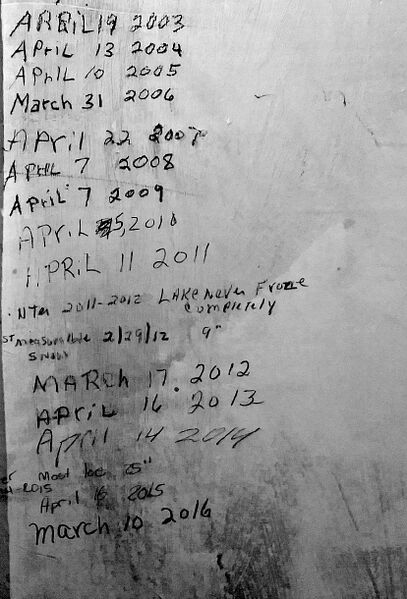 APRIL 19 2003
April 13 2004
APriL 10 2005
March 31 2006
April 22 2007
APriL 7 2008
APriL 7 2009
APriL 5, 2010
APRIL 11 2011
2011-2012 LAKE Never Froze
Completely
ST measurable 2/29/12 9"
Snow
MARCh 17. 2012
APRIL 16 2013
April 14 2014
Most Ice 25"
-2015
April 2015
March 10 2016